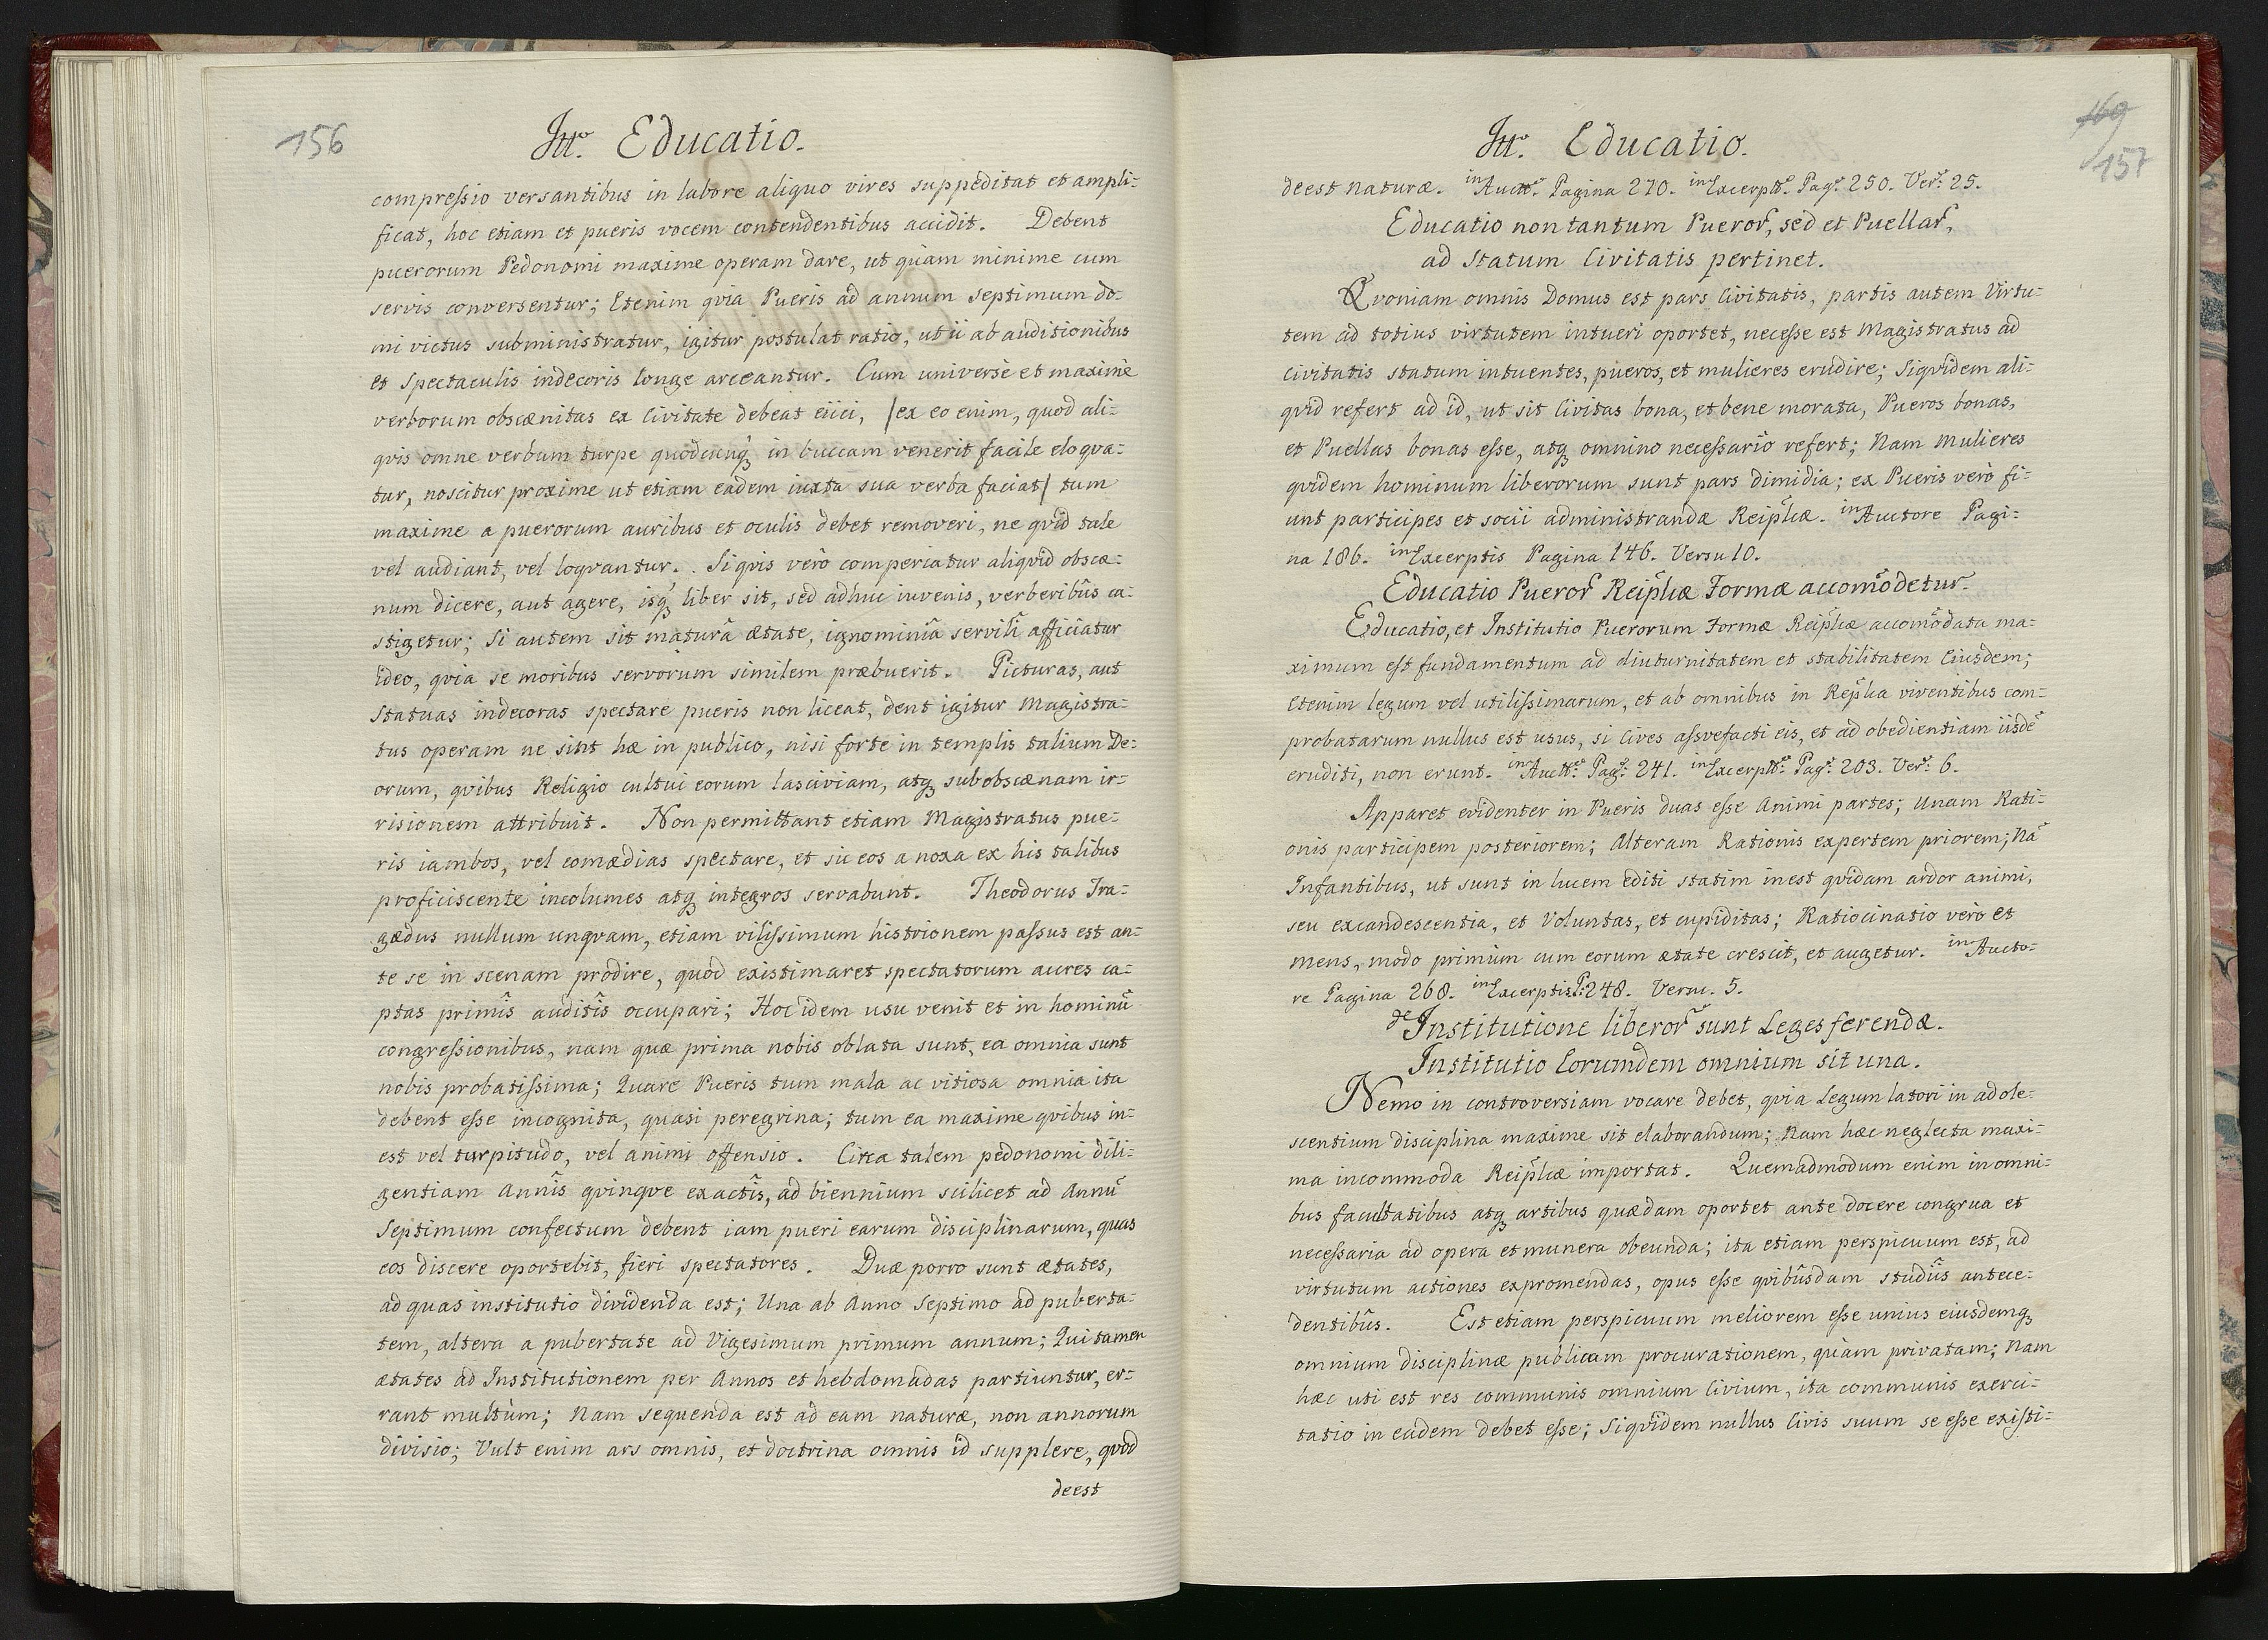 156
Itt.o Educatio.
compressio versantibus in labore aliquo vires suppeditat et ampli=
ficat, hoc etiam et pueris vocem contendentibus accidit. Debent
puerorum Pedonomi maxime operam dare, ut quàm minime cum
servis conversentur; Etenim qvia Pueris ad annum septimum do=
mi victus subministratur, igitur postulat ratio, ut ii ab auditionibus
et spectaculis indecoris longe arceantur. Cum universè et maximè
verborum obscænitas ex Civitate debeat eiici, /ex eo enim, quod ali=
qvis omne verbum turpe quodcunq₃ in buccam venerit facile eloqva=
tur, noscitur proxime ut etiam eadem iuxta sua verba faciat/ tum
maxime a puerorum auribus et oculis debet removeri, ne qvid tale
vel audiant, vel loqvantur.. Si qvis verò comperiatur aliqvid obscæ=
num dicere, aut agere, isq₃ liber sit, sed adhuc iuvenis, verberibûs ca=
stigetur; Si autem sit maturâ ætate, ignominiâ servili afficiatur
ideo, qvia se moribus servorum similem præbuerit. Picturas, aut
Statuas indecoras spectare pueris non liceat, dent igitur Magistra=
tus operam ne sint hæ in publico, nisi forte in templis talium De=
orum, qvibus Religio cultui eorum lasciviam, atq₃ subobscænam ir=
risionem attribuit. Non permittant etiam Magistratus pue=
ris iambos, vel comædias spectare, et sic eos a noxa ex his talibus
proficiscente incolumes atq₃ integros servabunt. Theodorus Tra=
gædus nullum unqvam, etiam vilissimum histrionem passus est an=
te se in scenam prodire, quod existimaret spectatorum aures ca=
ptas primîs auditîs occupari; Hoc idem usu venit et in hominũ
congressionibus, nam quæ prima nobis oblata sunt, ea omnia sunt
nobis probatissima; Quare Pueris tum mala ac vitiosa omnia ita
debent esse incognita, quasi peregrina; tum ea maxime qvibus in=
est vel turpitudo, vel animi offensio. Circa talem pedonomi dili=
gentiam Annîs qvinqve exactîs, ad biennium scilicet ad Annũ
Septimum confectum debent iam pueri earum disciplinarum, quas
eos discere oportebit, fieri spectatores. Duæ porro sunt ætates,
ad quas institutio dividenda est; Una ab Anno Septimo ad puberta=
tem, altera a pubertate ad Vigesimum primum annum; Qui tamen
ætates ad Institutionem per Annos et hebdomadas partiuntur, er=
rant multùm; Nam sequenda est ad eam naturæ, non annorum
divisio; Vult enim ars omnis, et doctrina omnis id supplere, qvod
deest
169
157
Itt.o Educatio.
deest naturæ. in Auctt.e Pagina 270. in Excerptt.s Pag.a 250. Ver.s 25.
Educatio non tantum Pueror̃, sed et Puellar̃,
ad Statum Civitatis pertinet.
Qvoniam omnis Domus est pars Civitatis, partis autem Virtu=
tem ad totius virtutem intueri oportet, necesse est Magistratus ad
Civitatis statum intuentes, pueros, et mulieres erudire; Siqvidem ali=
qvid refert ad id, ut sit Civitas bona, et bene morata, Pueros bonas,
et Puellas bonas esse, atq₃ omnino necessariò refert; Nam Mulieres
qvidem hominum liberorum sunt pars dimidia; ex Pueris verò fi=
unt participes et socii administrandæ Reipl̃icæ. in Auctore Pagi=
na 186. in Excerptis Pagina 146. Versu 10.
Educatio Pueror̃ Reipl̃icæ Formæ accom̃odetur.
Educatio, et Institutio Puerorum Formæ Reipl̃icæ accom̃odata ma=
ximum est fundamentum ad diuturnitatem et stabilitatem Eiusdem;
Etenim legum vel utilissimarum, et ab omnibus in Repl̃ica viventibus com=
probatarum nullus est usus, si Cives assvefacti eis, et ad obedientiam iisdẽ
eruditi, non erunt. in Auctt.e Pag.a 241. in Excerptt.s Pag.a 203. Ver.s 6.
Apparet evidenter in Pueris duas esse Animi partes; Unam Rati=
onis participem posteriorem; Alteram Rationis expertem priorem; Nã
Infantibus, ut sunt in lucem editi statim inest qvidam ardor animi,
seu excandescentia, et Voluntas, et cupiditas; Ratiocinatio verò et
mens, modo primùm cum eorum ætate crescit, et augetur. in Aucto=
re Pagina 268. in Excerptis P: 248. Versu. 5.
de Institutione liberor̃ sunt Leges ferendæ.
Institutio Eorumdem omnium sit una.
Nemo in controversiam vocare debet, qvia Legum latori in adole=
scentium disciplina maxime sit elaborandum; Nam hæc neglecta maxi=
ma incommoda Reipl̃icæ importat. Quemadmodum enim in omni=
bus facultatibus atq₃ artibus quædam oportet ante docere congrua et
necessaria ad opera et munera obeunda; ita etiam perspicuum est, ad
virtutum actiones expromendas, opus esse qvibûsdam studiîs antece=
dentibûs. Est etiam perspicuum meliorem esse unius eiusdemq₃
omnium disciplinæ publicam procurationem, quàm privatam; Nam
hæc uti est res communis omnium Civium, ita communis exerci=
tatio in eadem debet esse; Siqvidem nullus Civis suum se esse existi=